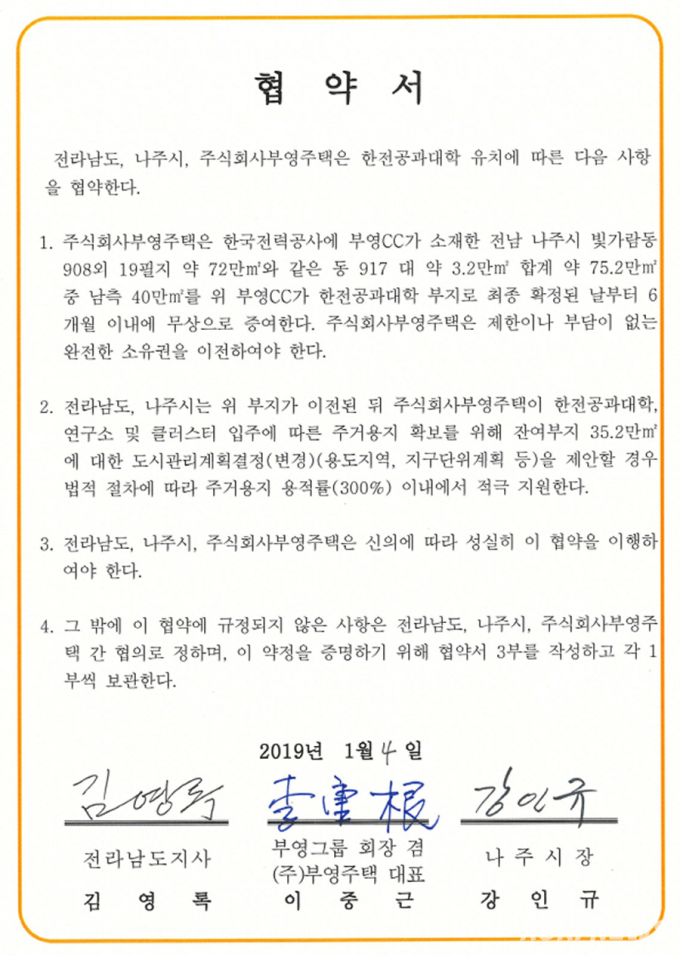 협 약 서
전라남도, 나주시, 주식회사부영주택은 한전공과대학 유치에 따른 다음 사항
을 협약한다.
1. 주식회사부영주택은 한국전력공사에 부영CC가 소재한 전남 나주시 빛가람동
908외 19필지 약 72만㎡와 같은 동 917 대 약 3.2만㎡ 합계 약 75.2만㎡
중 남측 40만㎡를 위 부영CC가 한전공과대학 부지로 최종 확정된 날부터 6
개월 이내에 무상으로 증여한다. 주식회사부영주택은 제한이나 부담이 없는
완전한 소유권을 이전하여야 한다.
2. 전라남도, 나주시는 위 부지가 이전된 뒤 주식회사부영주택이 한전공과대학,
연구소 및 클러스터 입주에 따른 주거용지 확보를 위해 잔여부지 35.2만㎡
에 대한 도시관리계획결정(변경)(용도지역, 지구단위계획 등)을 제안할 경우
법적 절차에 따라 주거용지 용적률(300%) 이내에서 적극 지원한다.
3. 전라남도, 나주시, 주식회사부영주택은 신의에 따라 성실히 이 협약을 이행하
여야 한다.
4. 그 밖에 이 협약에 규정되지 않은 사항은 전라남도, 나주시, 주식회사부영주
택 간 협의로 정하며, 이 약정을 증명하기 위해 협약서 3부를 작성하고 각 1
부씩 보관한다.
2019년 1월 4일
김영록 李重根 강인규
전라남도지사 부영그룹 회장 겸 나 주 시 장
(주)부영주택 대표
김 영 록 이 중 근 강 인 규